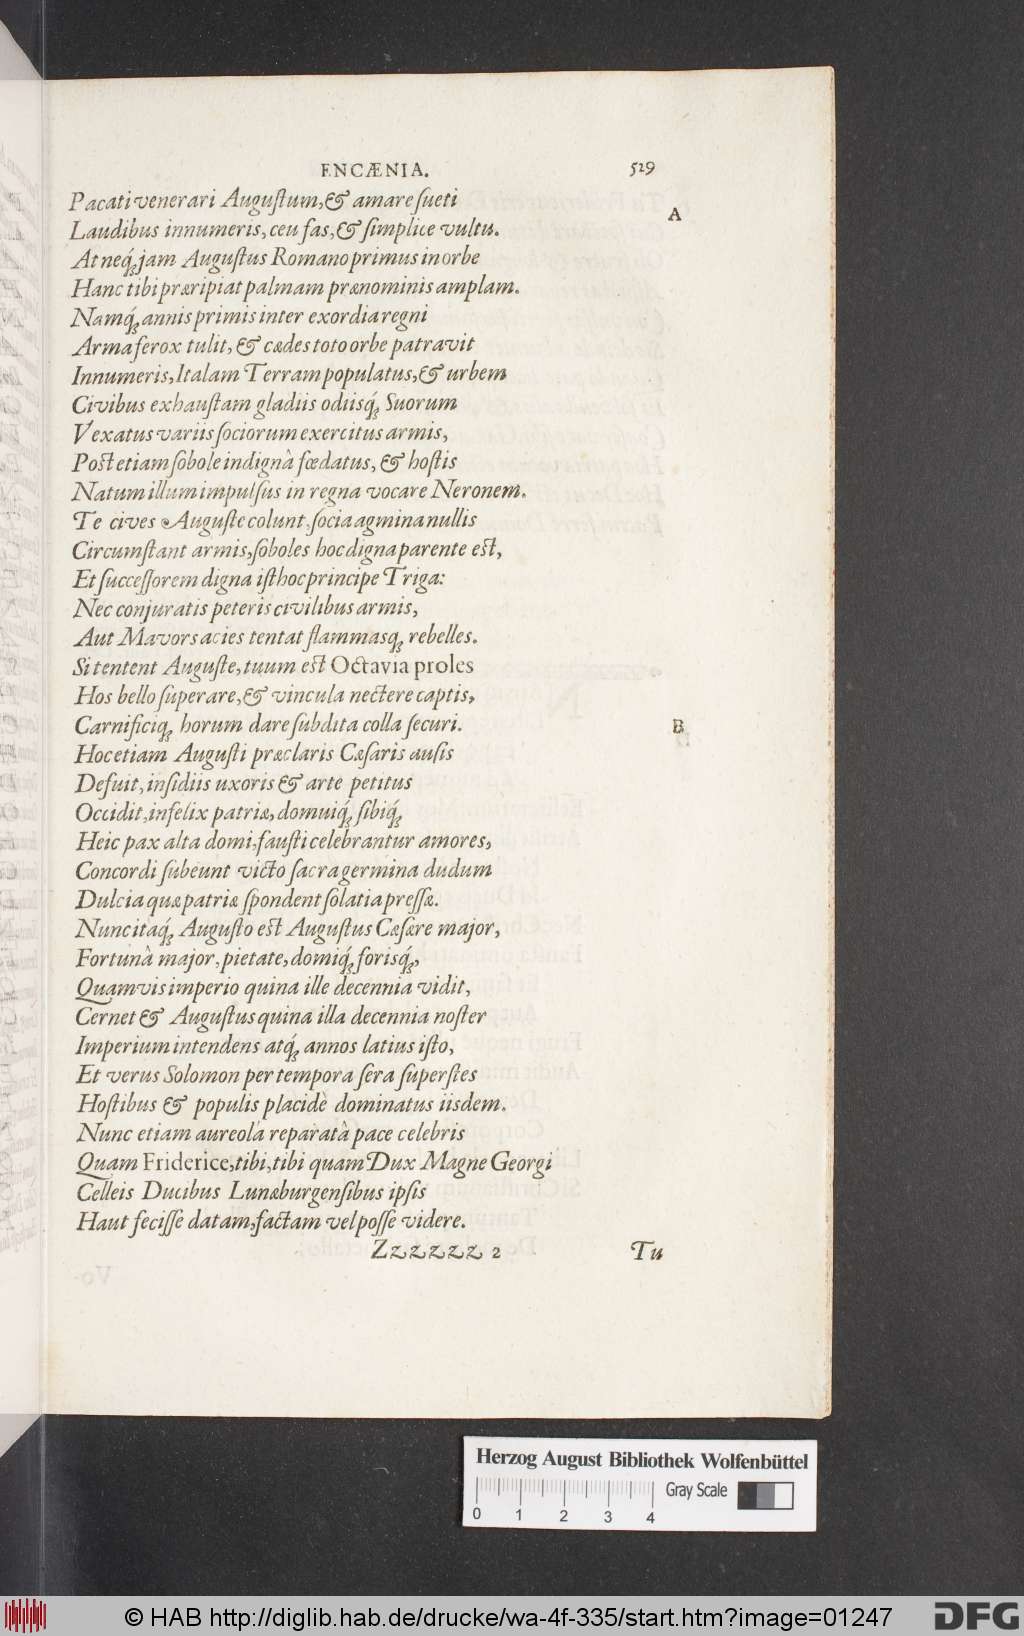 ENCÆNIA. 529
Pacati venerari Auguſtum, & amare ſueti
A
Laudibus innumeris, ceu fas, & ſimplice vultu.
At neq́; jam Auguſtus Romano primus in orbe
Hanc tibi præripiat palmam prænominis amplam.
Namq́; annis primis inter exordia regni
Arma ferox tulit, & cædes toto orbe patravit
Innumeris, Italam Terram populatus, & urbem
Civibus exhauſtam gladiis odiisq́; Suorum
Vexatus variis ſociorum exercitus armis,
Post etiam ſobole indignà fœdatus, & hoſtis
Natum illum impulſus in regna vocare Neronem.
Te cives Auguſte colunt, ſocia agmina nullis
Circumſtant armis, ſoboles hoc digna parente est,
Et ſucceſſorem digna iſthoc principe Triga:
Nec conjuratis peteris civilibus armis,
Aut Mavors acies tentat flammasq; rebelles.
Si tentent Auguſte, tuum est Octavia proles
Hos bello ſuperare, & vincula nectere captis,
Carnificiq; horum dare ſubdita colla ſecuri.
B
Hoc etiam Auguſti præclaris Cæſaris auſis
Defuit, inſidiis uxoris & arte petitus
Occidit, infelix patriæ, domuiq́; ſibiq́;
Heic pax alta domi, fauſti celebrantur amores,
Concordi ſubeunt victo ſacra germina dudum
Dulcia quæ patriæ ſpondent ſolatia preſſæ.
Nunc itaq́; Auguſto est Auguſtus Cæſare major,
Fortunà major, pietate, domiq́; forisq́;,
Quamvis imperio quina ille decennia vidit,
Cernet & Auguſtus quina illa decennia noſter
Imperium intendens atq́; annos latius iſto,
Et verus Solomon per tempora ſera ſuperſtes
Hoſtibus & populis placidè dominatus iisdem.
Nunc etiam aureolà reparatà pace celebris
Quam Friderice, tibi, tibi quam Dux Magne Georgi
Celleis Ducibus Lunæburgenſibus ipſis
Haut feciſſe datam, factam vel poſſe videre.
Zzzzzz 2 Tu
Herzog August Bibliothek Wolfenbüttel
Gray Scale
0 1 2 3 4
© HAB http://diglib.hab.de/drucke/wa-4f-335/start.htm?image=01247
DFG